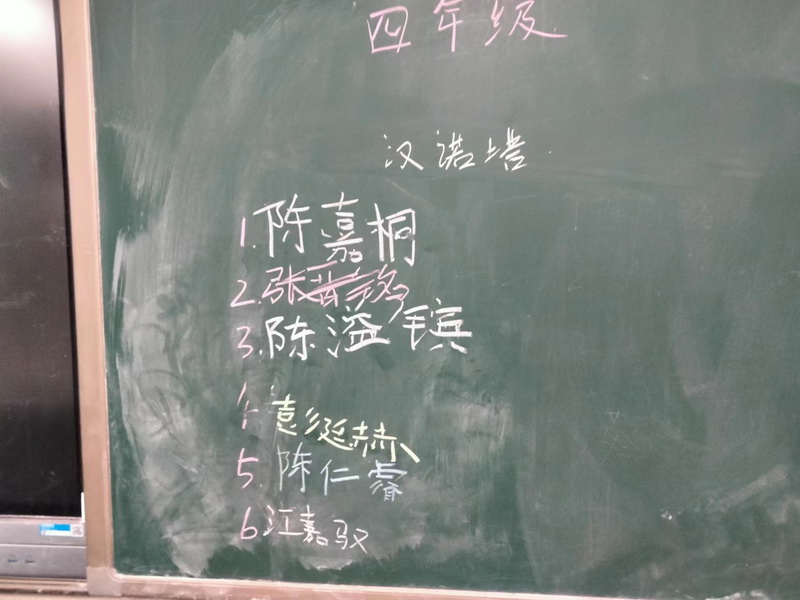 四年级
汉诺塔
1.陈嘉桐
2.张
3.陈溢镔
4.彭延赫
5.陈仁睿
6江嘉驭